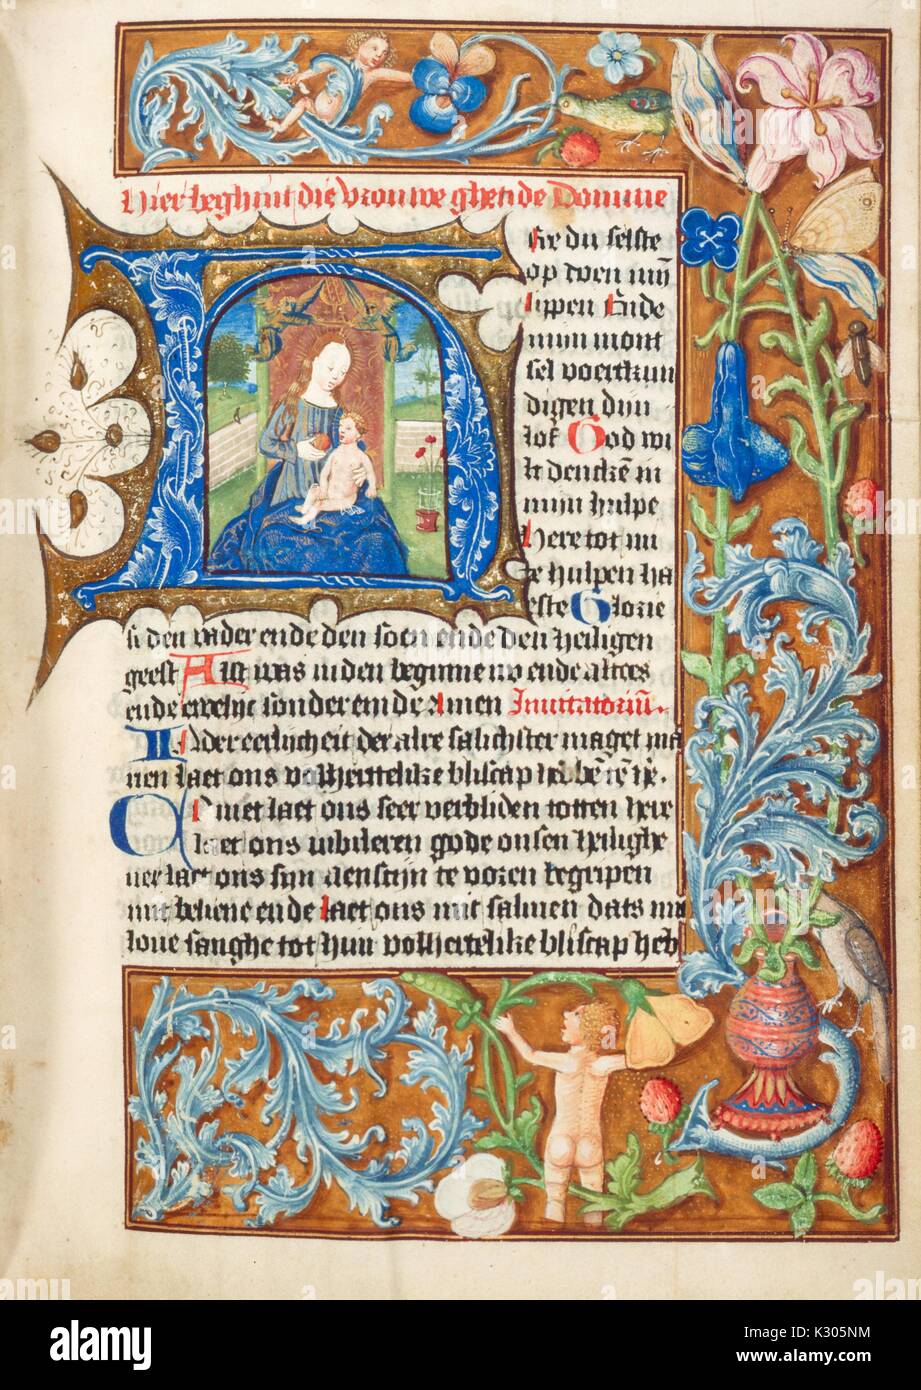 Hier beghint die vrouwe ghetide Domine
H
Ere du selste
op doen mijn
lippen Ende
mijn mont
sel voertkun
digen dijn
lof God wi
lt dencken in
mijn hulpe
Here tot mi
te hulpen ha
este Glorie
si den vader ende den soen ende den heiligen
geest Alst was inden beginne no ende altoes
ende ewelijc sonder einde Amen Invitatorium.
In der eerlicheit der alre salichster maget ma
rien laet ons volhertelike bliscap hebben
Comet laet ons seer verbliden totten here
laet ons iubileren gode onsen heilighe
ver laet ons sijn aenscijn te voren begripen
mit beliene ende laet ons mit salmen dats mit
love sanghe tot hun volhertelike bliscap heb
alamy
Image ID: K305NM
www.alamy.com